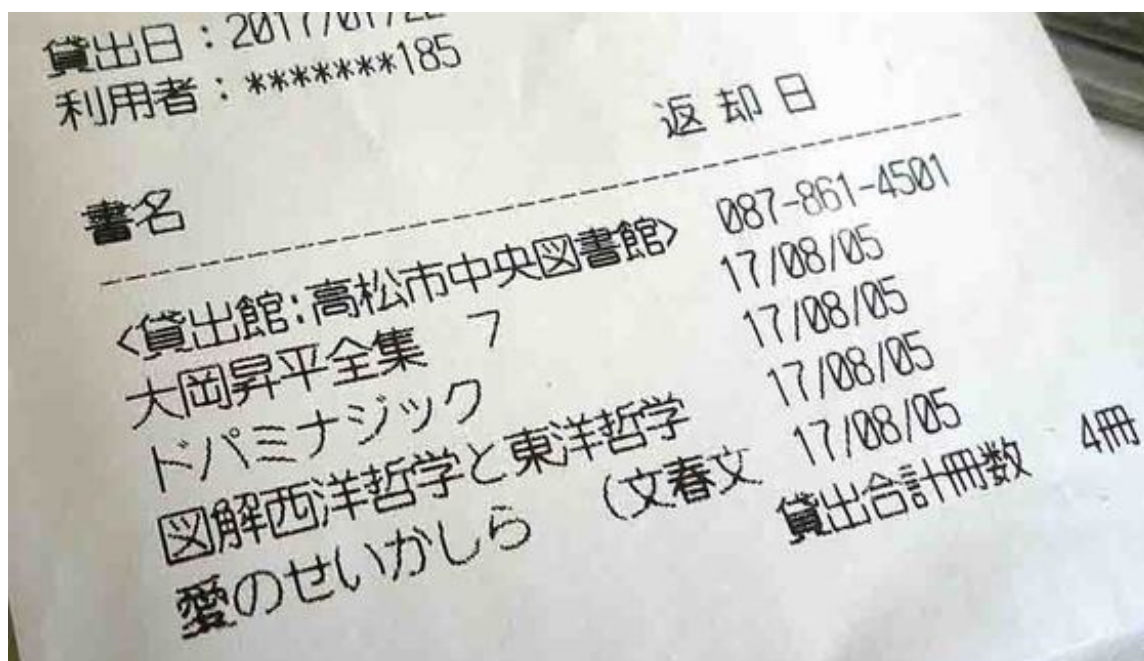 貸出日：2017/07/22
利用者：*******185
書名 返却日
<貸出館:高松市中央図書館> 087-861-4501
大岡昇平全集 7 17/08/05
ドパミナジック 17/08/05
図解西洋哲学と東洋哲学 17/08/05
愛のせいかしら (文春文 17/08/05
貸出合計冊数 4冊